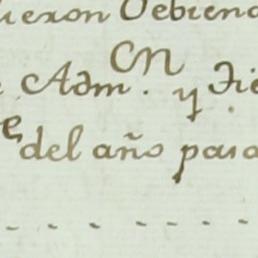 ieron Debien
Adm.on y Fie
del año pasa